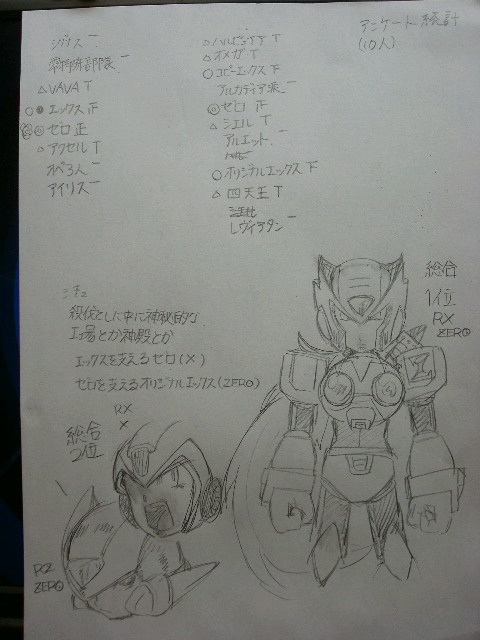 アンケート統計
(10人)
シグナス 一
△ VAVA T
○ エックス 正
◎ ゼロ 正
△ アクセル T
オペ3人 一
アイリス 一
△ ハルピュイア T
△ オメガ T
○ コピーエックス 下
アルカディア派 一
◎ ゼロ 正
△ シエル T
アルエット 一
○ オリジナルエックス 下
△ 四天王 T
レヴィアタン 一
シチュ
殺伐とした中に神秘的な
工場とか神殿とか
エックスを支えるゼロ(X)
ゼロを支えるオリジナルエックス(ZERO)
総合
1位
RX
ZERO
RX
X
総合
2位
RZ
ZERO
Z